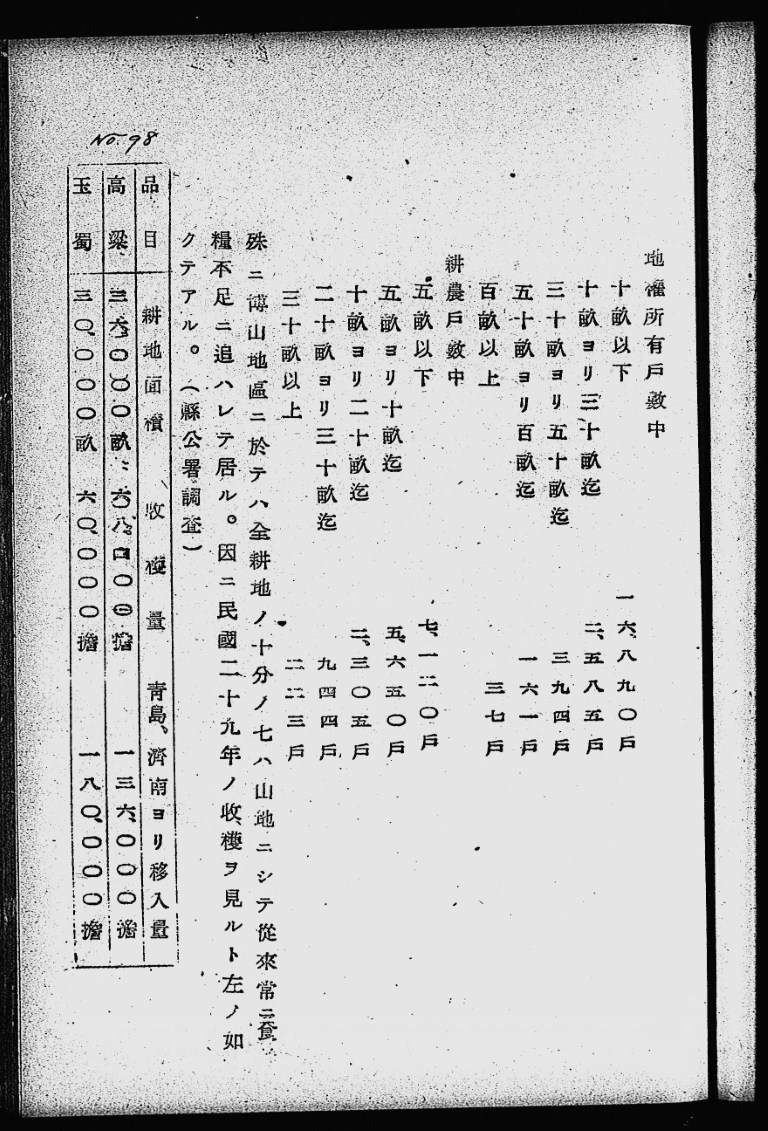 地權所有戶數中
十畝以下 一六、八九〇戶
十畝ヨリ三十畝迄 二、五八五戶
三十畝ヨリ五十畝迄 三九四戶
五十畝ヨリ百畝迄 一六一戶
百畝以上 三七戶
耕農戶數中
五畝以下 七、一二〇戶
五畝ヨリ十畝迄 五、六五〇戶
十畝ヨリ二十畝迄 二、三〇五戶
二十畝ヨリ三十畝迄 九四四戶
三十畝以上 二二三戶
殊ニ博山地區ニ於テハ全耕地ノ十分ノ七ハ山地ニシテ從來常ニ食
糧不足ニ追ハレテ居ル。因ニ民國二十九年ノ收穫ヲ見ルト左ノ如
クテアル。(縣公署調査)
品目 耕地面積 收穫量 青島、濟南ヨリ移入量
高粱 三六、〇〇〇畝 六八、四〇〇擔 一三六、〇〇〇擔
玉蜀 三〇、〇〇〇畝 六〇、〇〇〇擔 一八〇、〇〇〇擔
No. 98